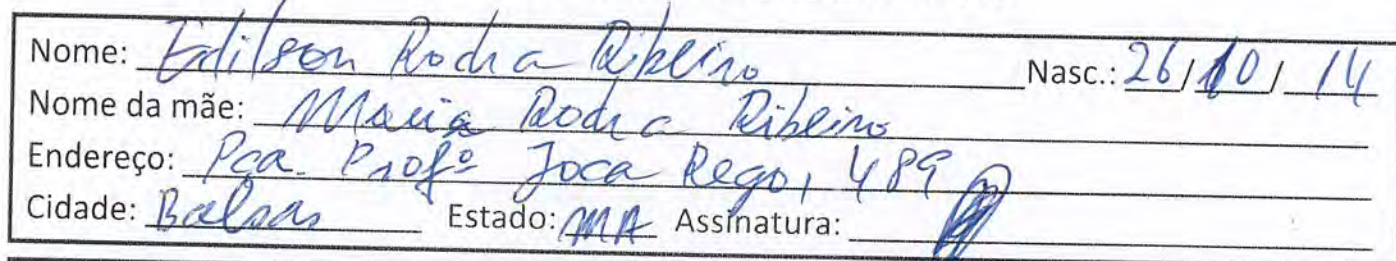 Nome: Edilson Rocha Ribeiro Nasc.: 26/10/14
Nome da mãe: Maria Rocha Ribeiro
Endereço: Pça. Profº Joca Rego, 489
Cidade: Balsas Estado: MA Assinatura: